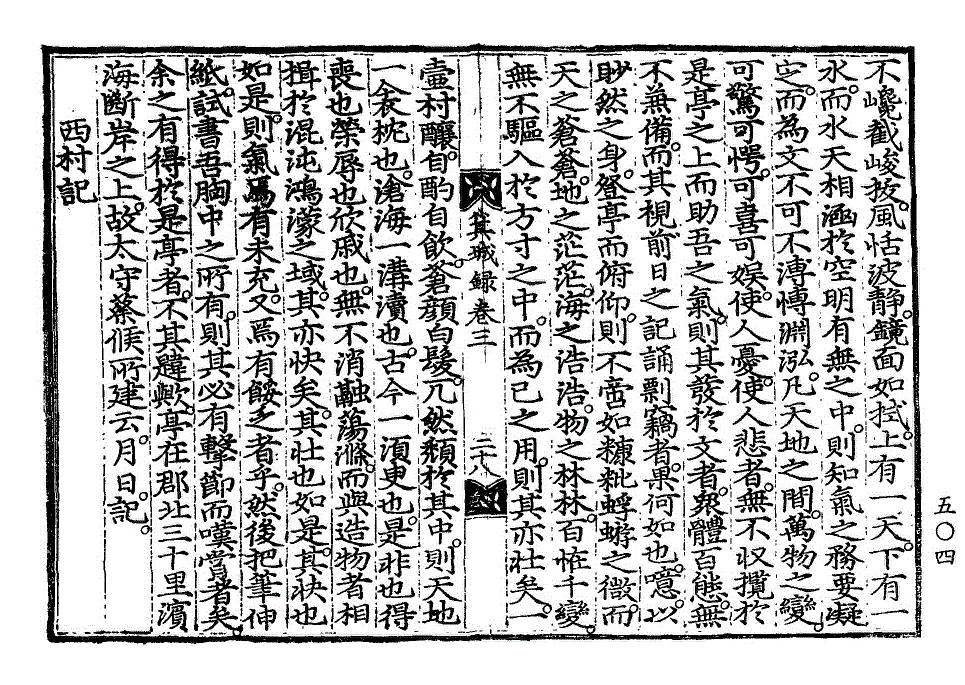 不巉截峻拔風恬波靜鏡面如拭上有一天下有一
水而水天相涵於空明有無之中則知氣之務要凝
定而為文不可不溥愽淵泓凡天地之間萬物之變
可驚可愕可喜可娛使人憂使人悲者無不収攬於
是亭之上而助吾之氣則其發於文者衆體百態無
不兼備而其視前日之記誦剽竊者果何如也噫以
眇然之身登亭而俯仰則不啻如糠粃蜉蝣之微而
天之蒼蒼地之茫茫海之浩浩物之林林百恠千變
無不驅入於方寸之中而為已之用則其亦壯矣一
箕城録卷三
二十八
壺村釀自酌自飲蒼顔白髮兀然頹於其中則天地
一衾枕也滄海一溝瀆也古今一須臾也是非也得
喪也榮辱也欣戚也無不消融蕩滌而與造物者相
揖於混沌鴻濛之域其亦快矣其壯也如是其快也
如是則氣焉有未充又焉有餒乏者乎然後把筆伸
紙試書吾胸中之所有則其必有擊節而嘆賞者矣
余之有得於是亭者不其韙歟亭在郡北三十里濱
海斷岸之上故太守蔡候所建云月日記
西村記
五〇四